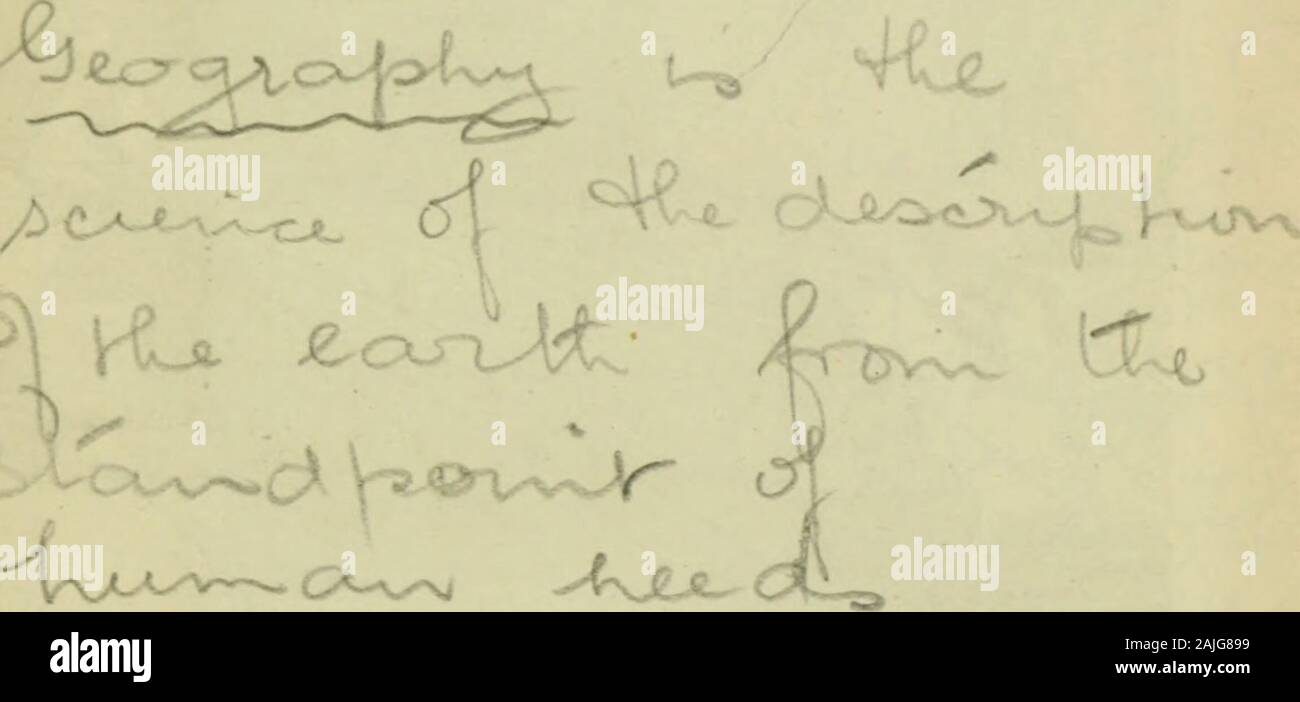 Geography is the
science of the description
of the earth from the
standpoint of
human needs
alamy
alamy
alamy
alamy
alamy
alamy
Image ID: 2AJG899
www.alamy.com